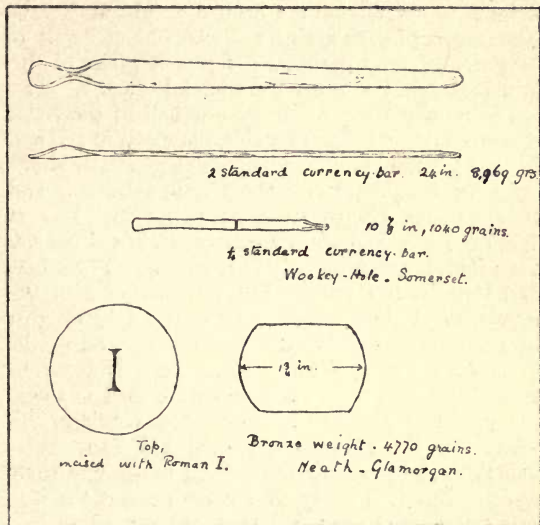 2 standard currency-bar. 24 in. 8,969 grs
10 7/8 in, 1040 grains.
1/4 standard currency-bar.
Wookey-Hole. Somerset.
I
1 3/4 in.
Top,
incised with Roman I.
Bronze weight. 4770 grains.
Neath - Glamorgan.